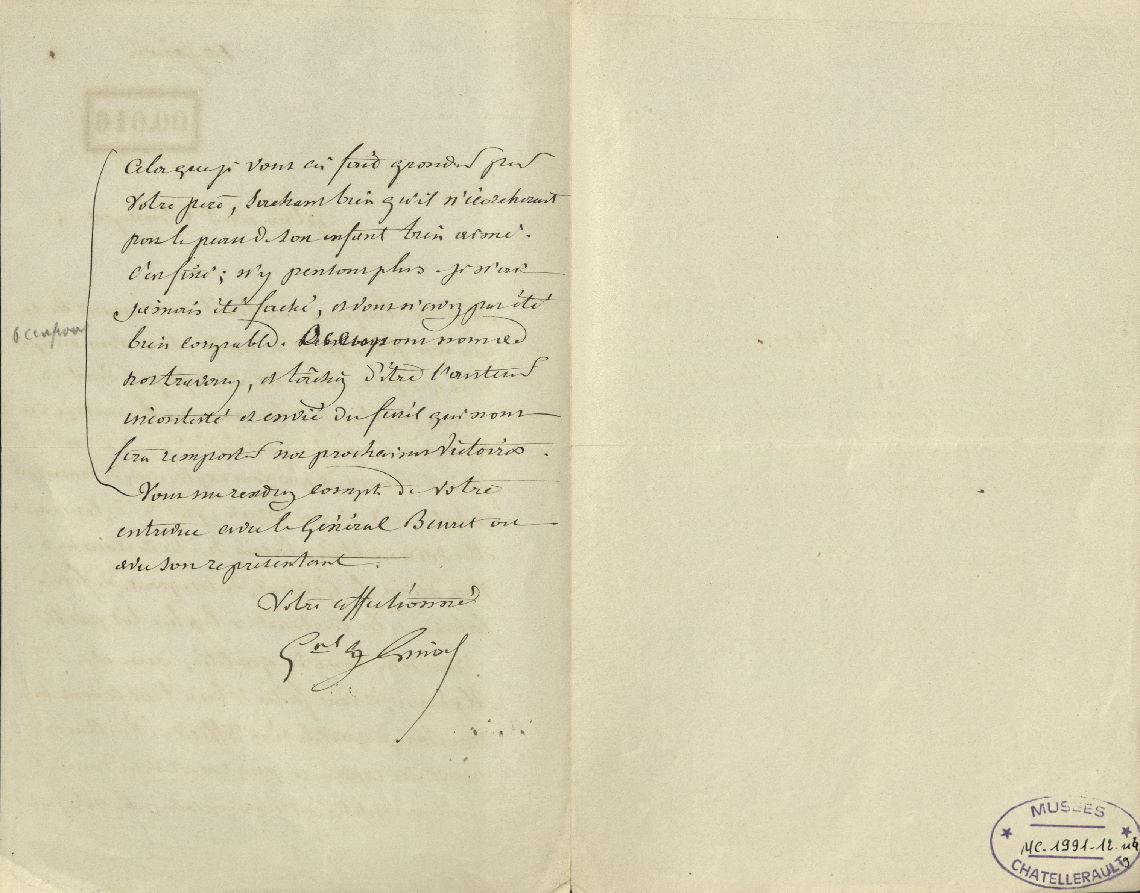 Celer que je vous ai fait gronder par
votre père, sachant bien qu'il n'écorcherait
pas la peau de son enfant bien aimé.
C'est fini; n'y pensons plus. Je n'ai
jamais été fâché, et vous n'avez pas été
bien coupable. Occupons nous de
nos travaux, et tâchez d'être l'auteur
incontesté et envié du fusil qui nous
fera remporter nos prochaines victoires.
Vous me rendrez compte de votre
entrevue avec le Général Berret ou
avec son représentant.
Votre affectionné
Gal
occupons
00.016
MUSÉES
MC-1991-12
CHATELLERAULT